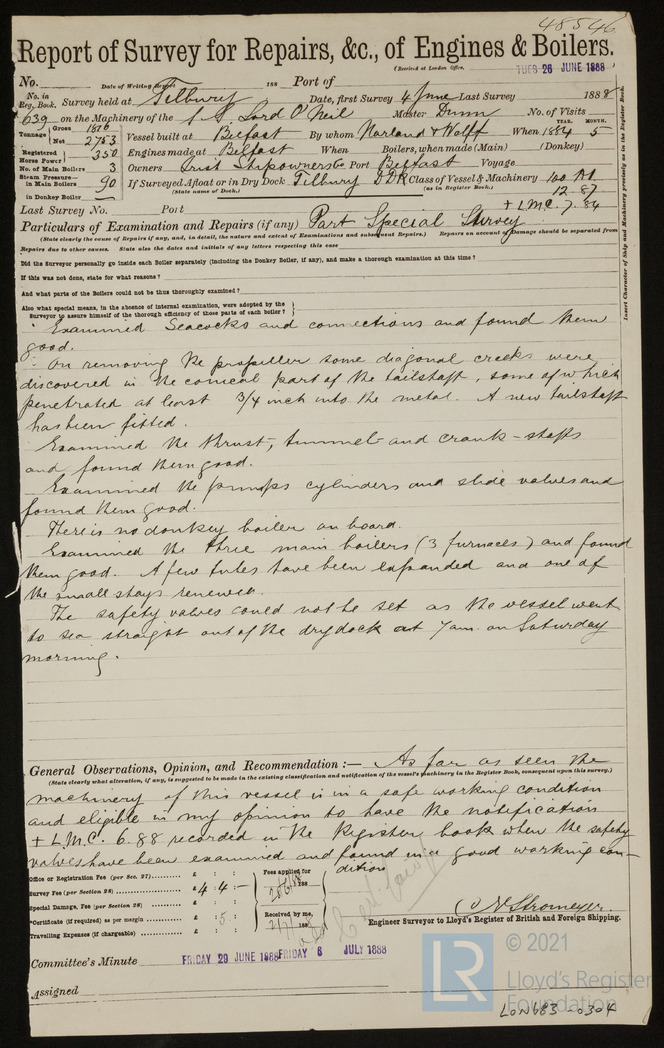 48546
Report of Survey for Repairs, &c., of Engines & Boilers.
(Received at London Office, TUES 26 JUNE 1888
No. Date of Writing Report 188 Port of
No. in Reg. Book. Survey held at Tilbury Date, first Survey 4 June Last Survey 1888
639 on the Machinery of the S.S. Lord O'Neil Master Dunn No. of Visits
Tonnage Gross 1816 Net 2753 Vessel built at Belfast By whom Harland & Wolff When 1884 YEAR. MONTH. 5
Registered Horse Power 350 Engines made at Belfast When Boilers, when made (Main) (Donkey)
No. of Main Boilers 3 Owners Irish Shipowners Co Port Belfast Voyage
Steam Pressure in Main Boilers 90 If Surveyed Afloat or in Dry Dock Tilbury D Dk Class of Vessel & Machinery 100 A1
(State name of Dock.) (as in Register Book.) 12.87
in Donkey Boiler —
Last Survey No. Port + LMC. 7.84
Particulars of Examination and Repairs (if any) Part Special Survey
(State clearly the cause of Repairs if any, and, in detail, the nature and extent of Examinations and subsequent Repairs.) Repairs on account of Damage should be separated from
Repairs due to other causes. State also the dates and initials of any letters respecting this case
Did the Surveyor personally go inside each Boiler separately (including the Donkey Boiler, if any), and make a thorough examination at this time?
If this was not done, state for what reasons?
And what parts of the Boilers could not be thus thoroughly examined?
Also what special means, in the absence of internal examination, were adopted by the
Surveyor to assure himself of the thorough efficiency of those parts of each boiler?
Examined Seacocks and connections and found them
good.
On removing the propeller some diagonal creeks were
discovered in the conical part of the tailshaft, some of which
penetrated at least 3/4 inch into the metal. A new tailshaft
has been fitted.
Examined the thrust, tunnel and crank-shafts
and found them good.
Examined the pumps cylinders and slide valves and
found them good.
There is no donkey boiler on board.
Examined the three main boilers (3 furnaces) and found
them good. A few tubes have been expanded and one of
the small stays renewed.
The safety valves could not be set as the vessel went
to sea straight out of the dry dock at 7 am. on Saturday
morning.
General Observations, Opinion, and Recommendation :— As far as seen the
(State clearly what alteration, if any, is suggested to be made in the existing classification and notification of the vessel's machinery in the Register Book, consequent upon this survey.)
machinery of this vessel is in a safe working condition
and eligible in my opinion to have the notification
+ LMC. 6.88 recorded in the Register book when the safety
valves have been examined and found in a good working con-
dition
Office or Registration Fee (per Sec. 27) £ : : Fees applied for
Survey Fee (per Section 28) £ 4.4 :– 188
Special Damage Fee (per Section 28) £ : : Received by me,
*Certificate (if required) as per margin : 5 : 2/7/ 188
Travelling Expenses (if chargeable) £ : :
C. E. Stromeyer
Engineer Surveyor to Lloyd's Register of British and Foreign Shipping.
Committee's Minute FRIDAY 29 JUNE 1888 FRIDAY 6 JULY 1888
Assigned
Insert Character of Ship and Machinery precisely as in the Register Book.
LR © 2021
Lloyd's Register
Foundation
LON683-0304